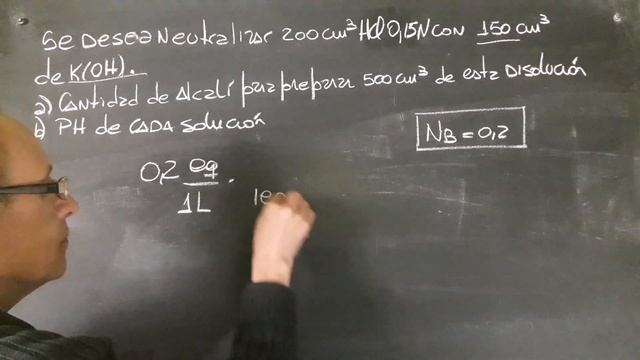 Se Desea Neutralizar 200 cm³ HCl 0,15N con 150 cm³
de K(OH).
a) Cantidad de Alcali para preparar 500 cm³ de esta Disolución
b) PH de CADA solución
NB = 0,2
0,2 eq
1L
1e